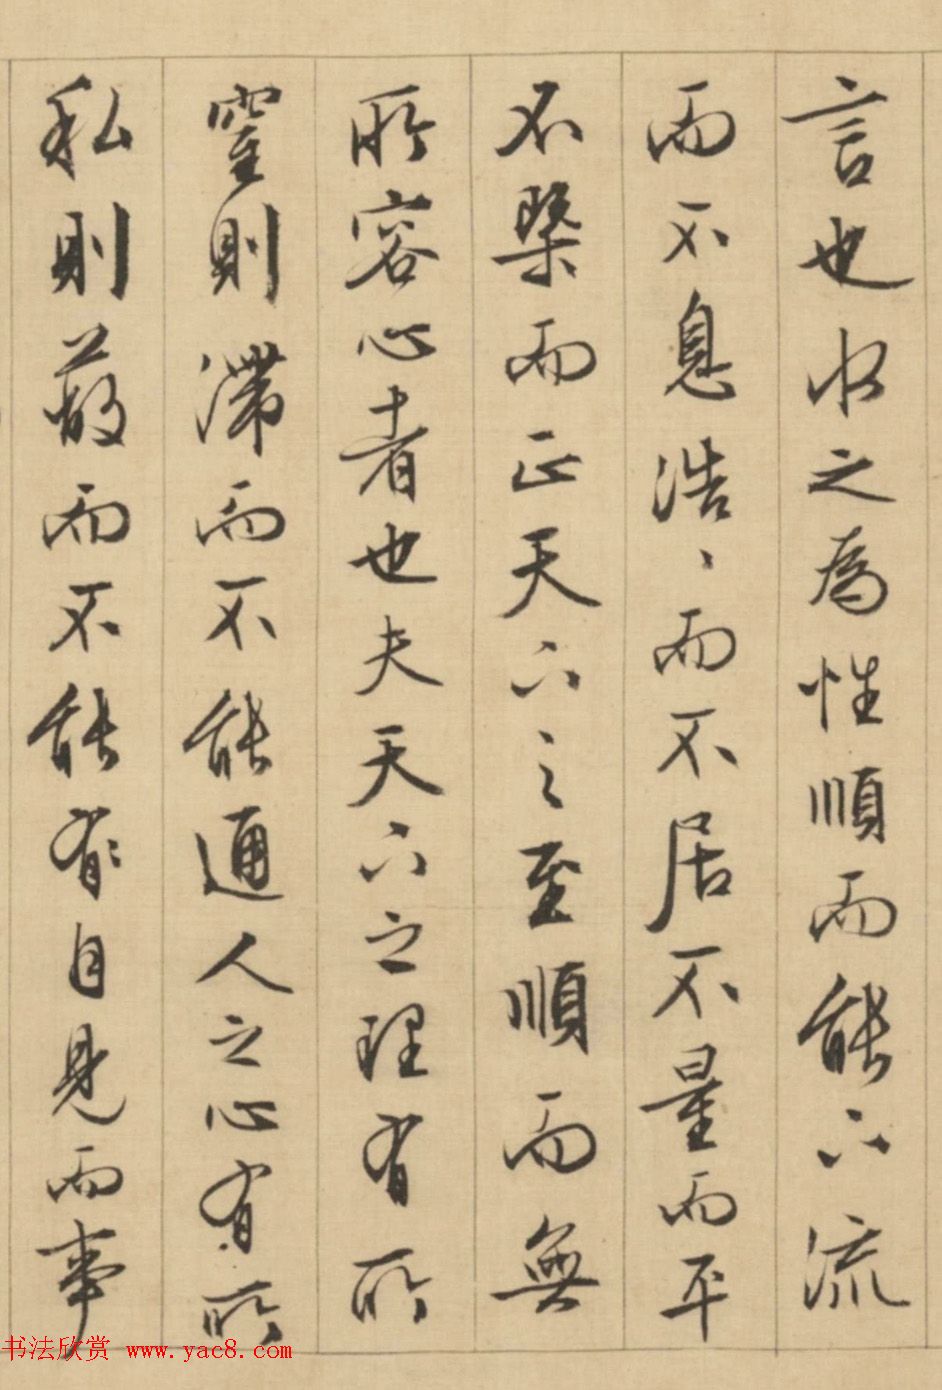 言也水之為性順而能下流
而不息浩〻而不居不量而平
不槩而正天下之至順而無
所容心者也夫天下之理有所
窒則滯而不能通人之心有所
私則蔽而不能有自見而事
书法欣赏 www.yac8.com